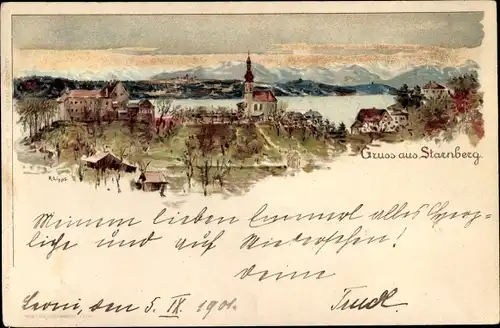 R. Lipps
Gruss aus Starnberg.
Meinem lieben Emmerl alles Herz-
liche und auf Wiedersehen!
deine
Leoni, den 5. IX. 1901. Trudl.